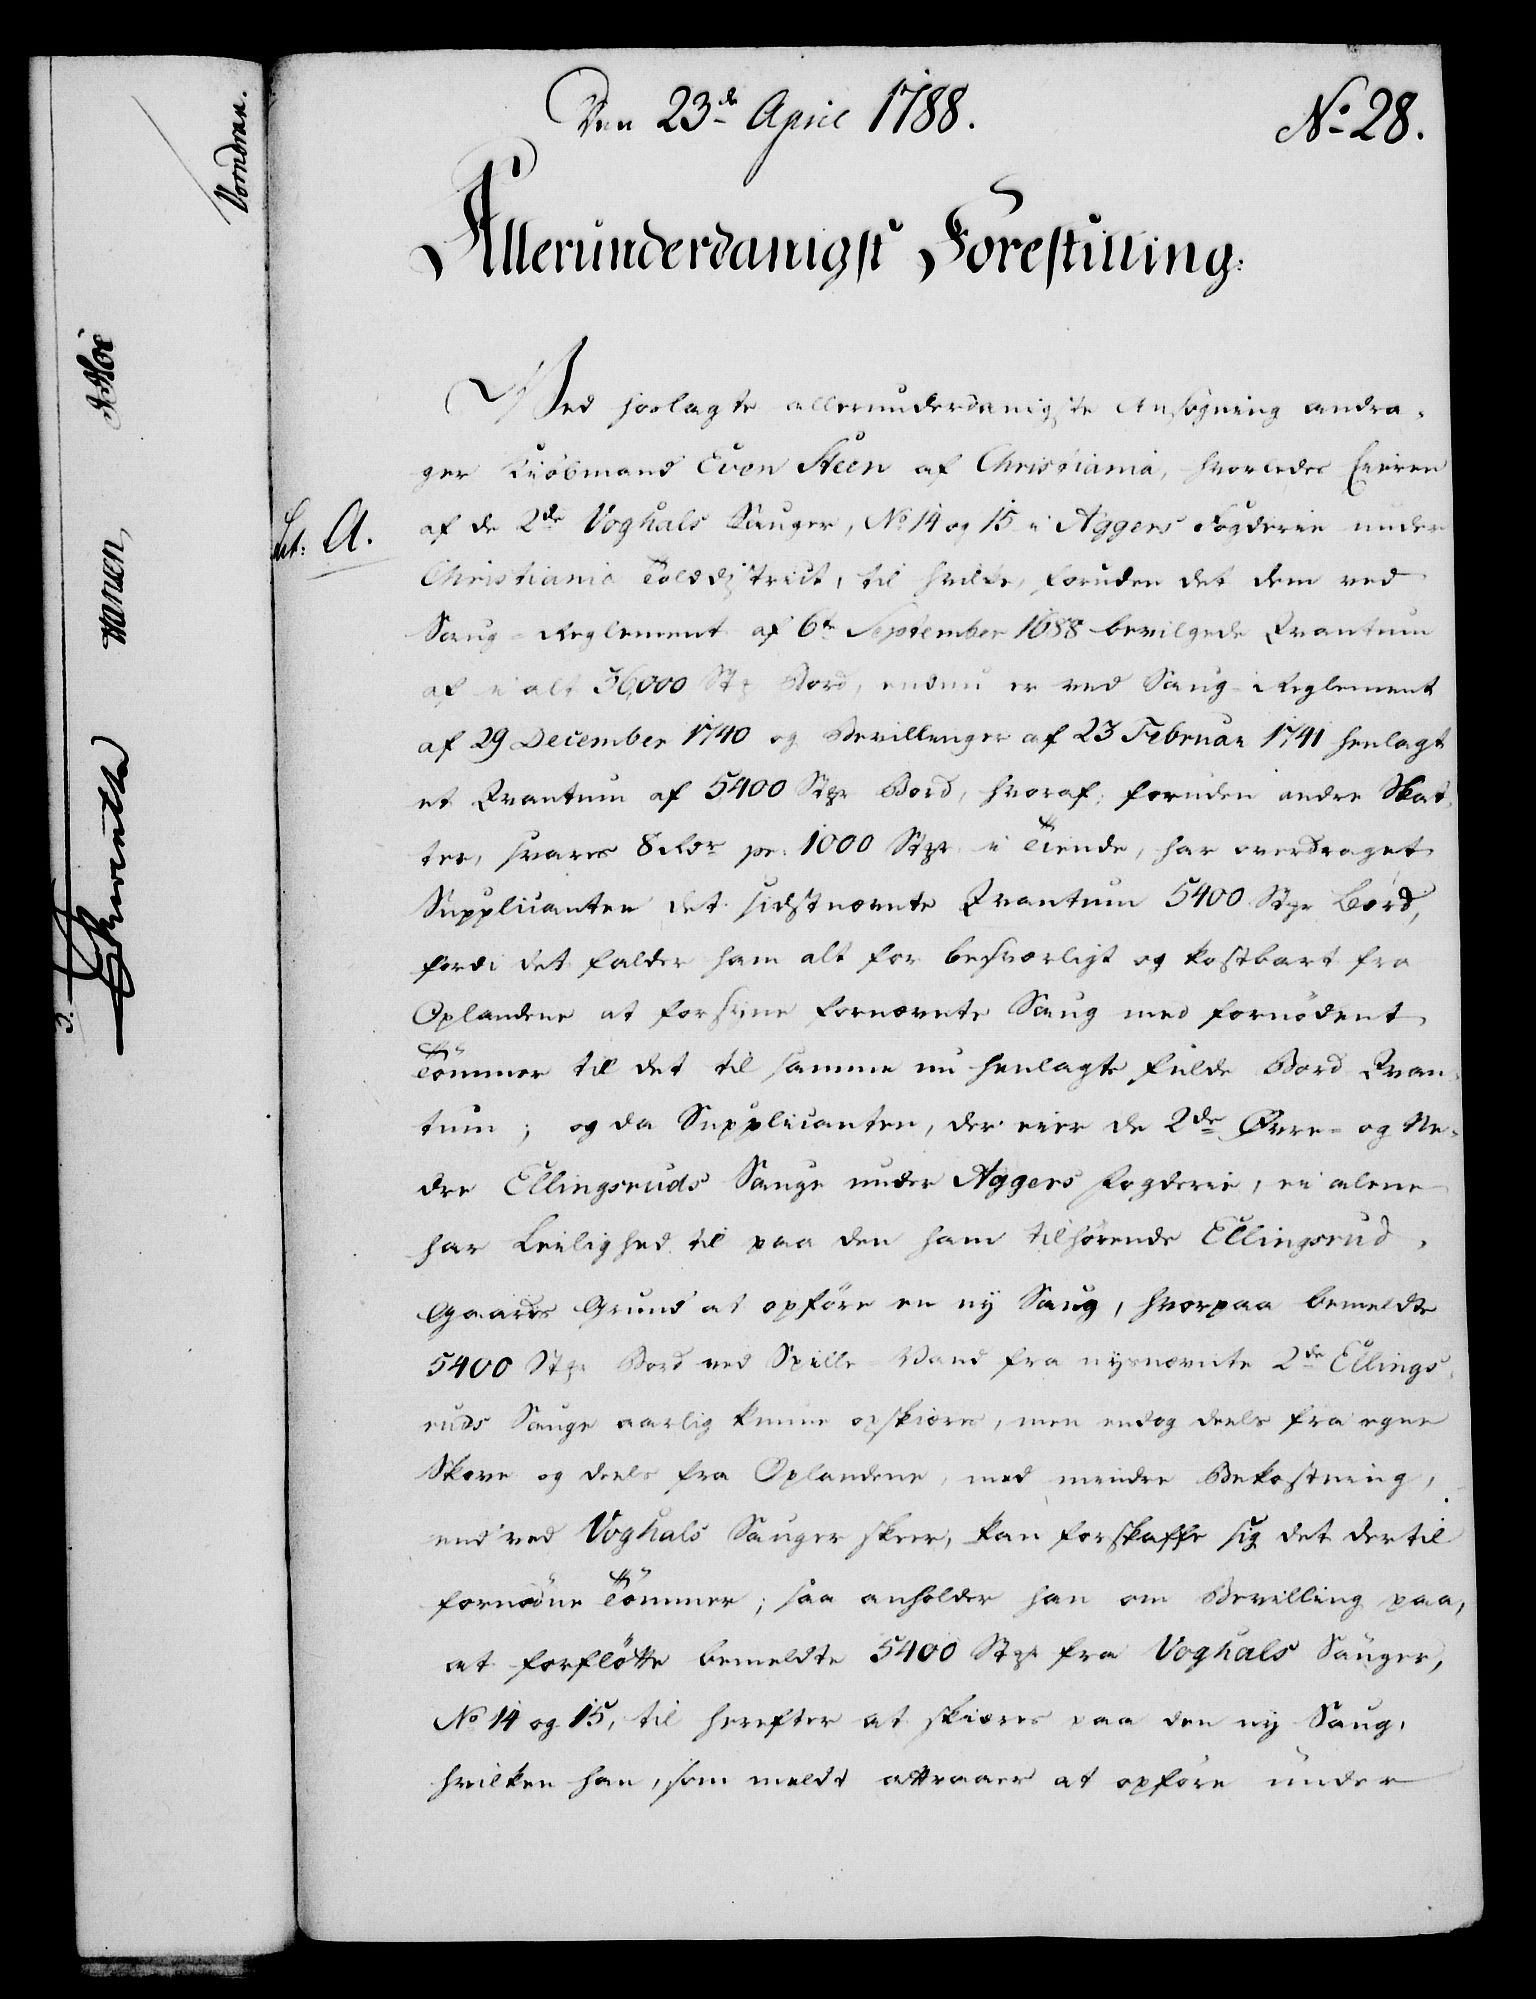 Den 23de April 1788.
No 28.
Allerunderdanigst Forestilling:
Ved hoslagte allerunderdanigste Ansögning andra-
ger Kiöbmand Even Steen af Christiania, hvorledes Eieren
Lit: A.
af de 2de Voghals Sauger, No 14 og 15 i Aggers Fogderie under
Christiania Tolddistrict, til hvilke, foruden det dem ved
Saug-Reglement af 6te September 1688 bevilgede Qvantum
af i alt 36,000 Stkr Bord, endnu er ved Saug-Reglement
af 29 December 1740 og Bevillinger af 23 Februar 1741 henlagt
et Qvantum af 5400 Stkr Bord, hvoraf, foruden andre Skat-
ter, svares 8 rdr pr. 1000 Stkr i Tiende, har overdraget
Supplicanten det sidstnævnte Qvantum 5400 Stkr Bord,
fordi det falder ham alt for besværligt og kostbart fra
Oplandene at forsyne fornævnte Saug med fornödent
Tömmer til det til samme nu henlagte fulde Bord Qvan-
tum; og da Supplicanten, der eier de 2de Övre- og Ne-
dre Ellingsruds Sauge under Aggers Fogderie, ei alene
har Leilighed til paa den ham tilhörende Ellingsrud-
Gaards Grund at opföre en ny Saug, hvorpaa bemeldte
5400 Stkr Bord ved Spille-Vand fra nysnævnte 2de Ellings-
ruds Sauge aarlig kunne opskiæres, men endog deels fra egne
Skove og deels fra Oplandene, med mindre Bekostning,
end ved Voghals Sauger skeer, kan forskaffe sig det dertil
fornödne Tömmer; saa anholder han om Bevilling paa,
at forflötte bemeldte 5400 Stkr fra Voghals Sauger,
No 14 og 15, til herefter at skiæres paa den ny Saug,
hvilken han, som meldt attraaer at opföre under
Vorndran.
Hoë
Hansen,